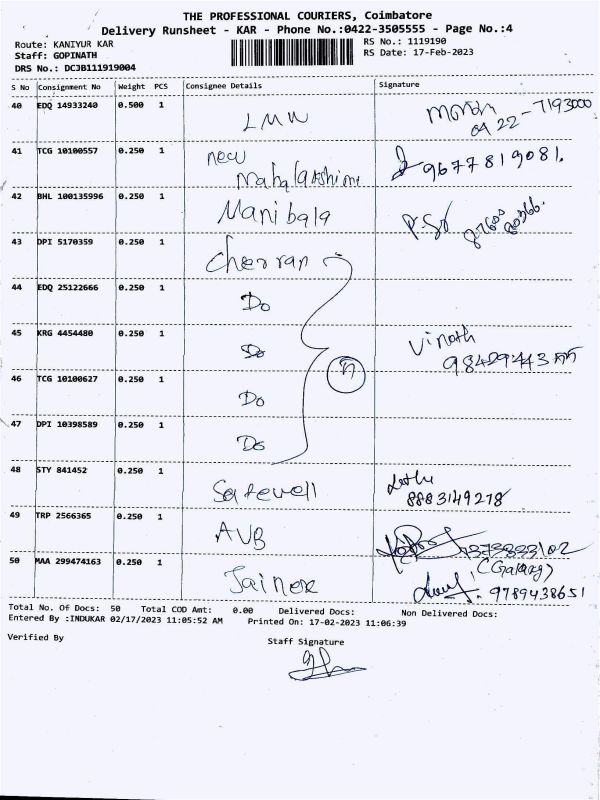 THE PROFESSIONAL COURIERS, Coimbatore
Delivery Runsheet - KAR - Phone No.:0422-3505555 - Page No.:4
Route: KANIYUR KAR
RS No.: 1119190
Staff: GOPINATH
RS Date: 17-Feb-2023
DRS No.: DCJB111919004
S No Consignment No Weight PCS Consignee Details Signature
40 EDQ 14933240 0.500 1 LMW 0422 - 7193000
41 TCG 10100557 0.250 1 new 9677819081.
Mahalakshimi
42 BHL 100135996 0.250 1 Manibala
43 DPI 5170359 0.250 1 Cherran
44 EDQ 25122666 0.250 1 Do
45 KRG 4454480 0.250 1 Do Vinoth
46 TCG 10100627 0.250 1 Do
47 DPI 10398589 0.250 1 Do
48 STY 841452 0.250 1 Safewell
8883149278
49 TRP 2566365 0.250 1 AVB
50 MAA 299474163 0.250 1 Jainex
9789438651
Total No. Of Docs: 50 Total COD Amt: 0.00 Delivered Docs: Non Delivered Docs:
Entered By :INDUKAR 02/17/2023 11:05:52 AM Printed On: 17-02-2023 11:06:39
Verified By
Staff Signature